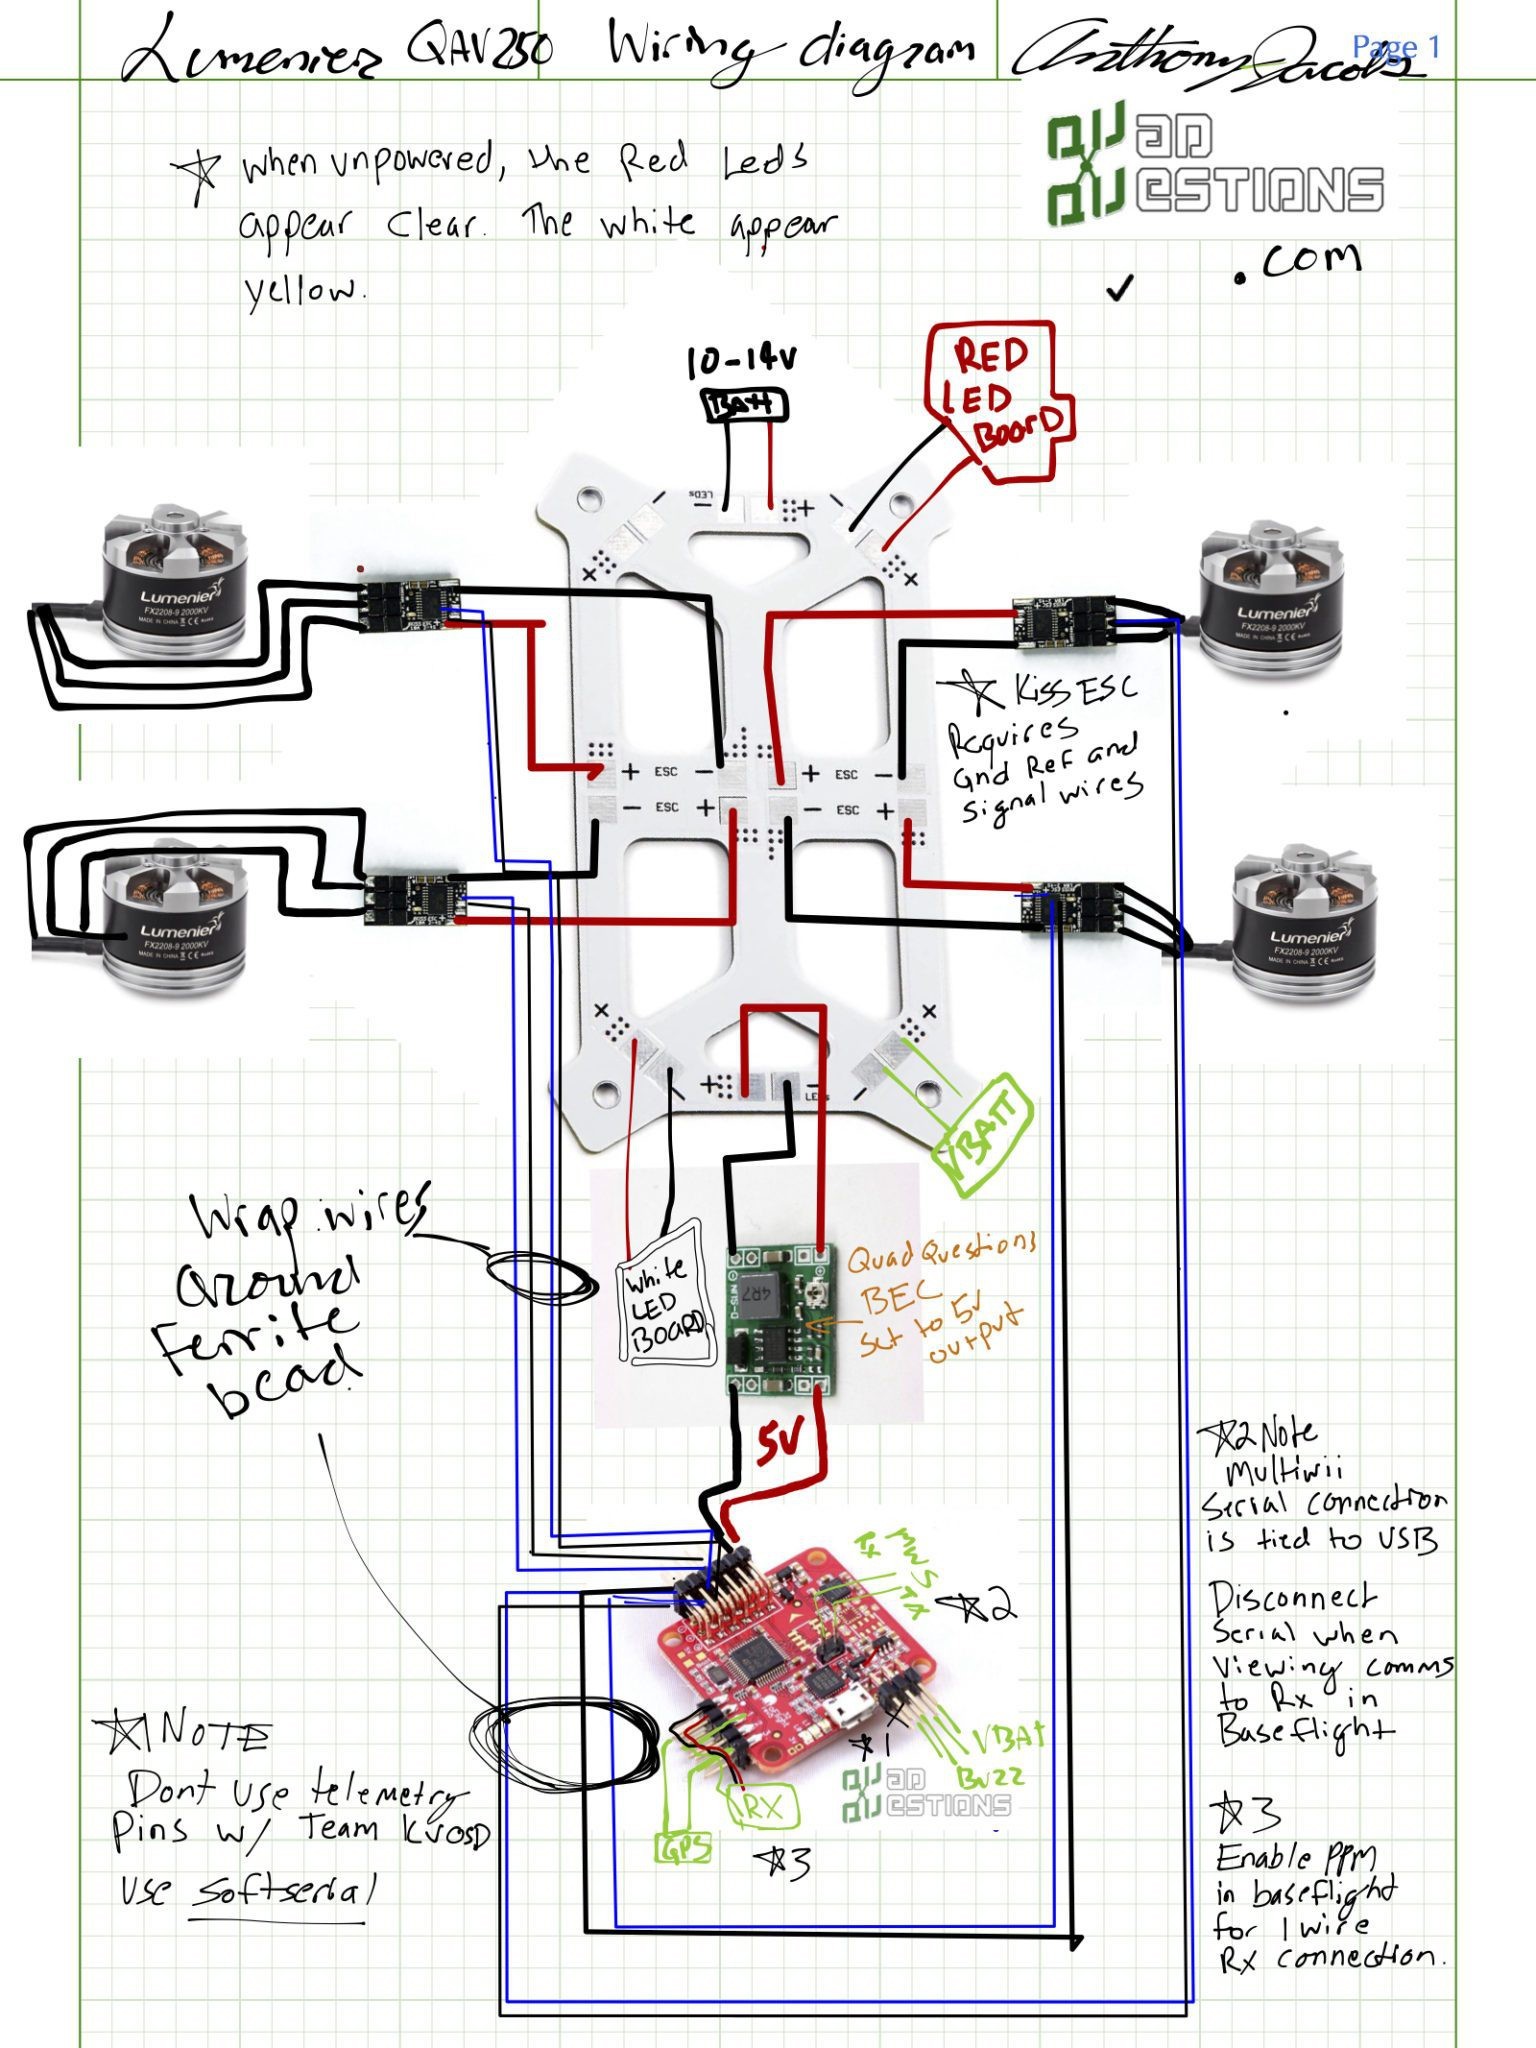 Lumenier QAV250 Wiring diagram Anthony Jacobs
Page 1
QUAD
QUESTIONS
.com
☆ when unpowered, the Red Leds
appear clear. The white appear
yellow.
10-14V
BAtt
RED
LED
BoarD
LEDs
− +
Lumenier
FX2208-9 2000KV
MADE IN CHINA
Lumenier
FX2208-9 2000KV
MADE IN CHINA
☆ Kiss ESC
Requires
Gnd Ref and
signal wires
+ ESC − + ESC −
− ESC + − ESC +
Lumenier
FX2208-9 2000KV
MADE IN CHINA
Lumenier
FX2208-9 2000KV
MADE IN CHINA
+ −
LEDs
VBATT
Wrap wires
Around
Ferrite
bead.
White
LED
BOARD
4R7
Quad Questions
BEC
set to 5v
output
5V
☆2 Note
Multiwii
Serial connection
is tied to USB
Disconnect
Serial when
Viewing comms
to Rx in
Baseflight
Rx
MWS
TX
☆2
☆1 NOTE
Dont use telemetry
Pins w/ Team KVOSD
use softserial
☆1
VBAt
Buzz
QUAD
QUESTIONS
RX
GPS
☆3
☆3
Enable PPM
in baseflight
for 1 wire
Rx connection.